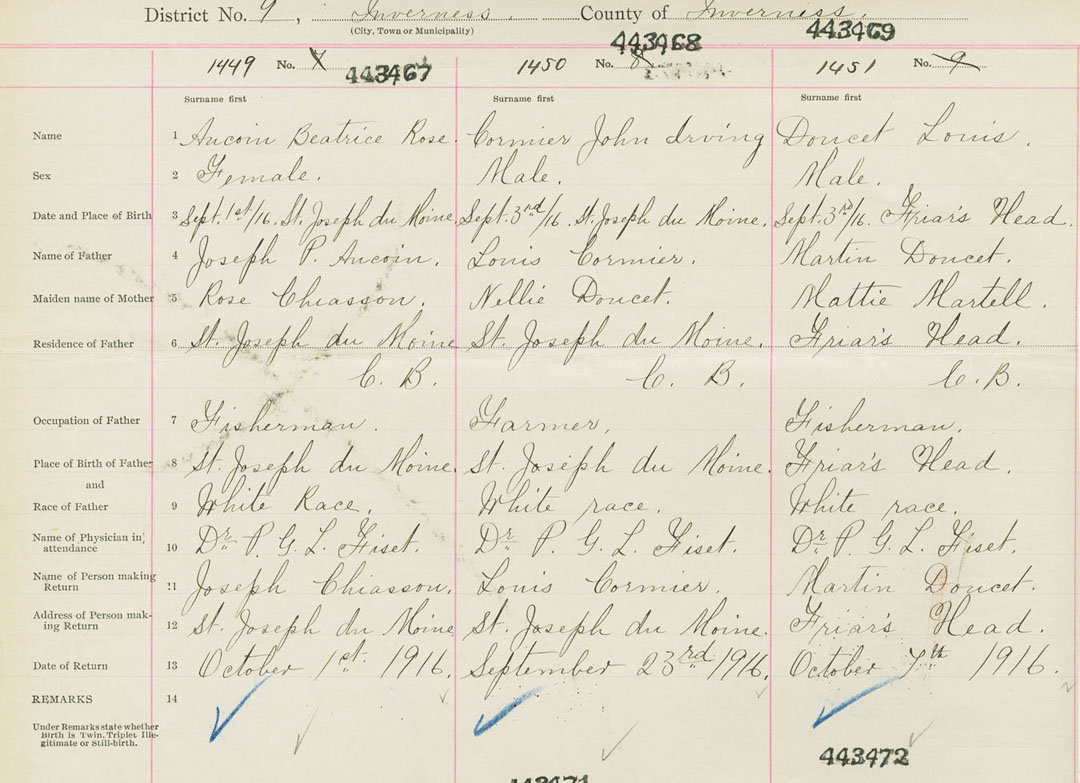 District No. 9, Inverness. County of Inverness.
(City, Town or Municipality)
443468 443469
1449 No. 7 443467 1450 No. 8 1451 No. 9
Surname first Surname first Surname first
Name 1 Aucoin Beatrice Rose. Cormier John Irving Doucet Louis.
Sex 2 Female. Male. Male.
Date and Place of Birth 3 Sept. 1st/16. St. Joseph du Moine. Sept. 3rd/16. St. Joseph du Moine. Sept. 3rd/16. Friar's Head.
Name of Father 4 Joseph P. Aucoin. Louis Cormier. Martin Doucet.
Maiden name of Mother 5 Rose Chiasson. Nellie Doucet. Mattie Martell.
Residence of Father 6 St. Joseph du Moine St. Joseph du Moine. Friar's Head.
C. B. C. B. C. B.
Occupation of Father 7 Fisherman. Farmer. Fisherman.
Place of Birth of Father 8 St. Joseph du Moine. St. Joseph du Moine. Friar's Head.
and
Race of Father 9 White Race. White race. White race.
Name of Physician in attendance 10 Dr. P. G. L. Fiset. Dr. P. G. L. Fiset. Dr. P. G. L. Fiset.
Name of Person making Return 11 Joseph Chiasson. Louis Cormier. Martin Doucet.
Address of Person making Return 12 St. Joseph du Moine St. Joseph du Moine. Friar's Head.
Date of Return 13 October 1st. 1916. September 23rd 1916. October 7th 1916.
REMARKS 14
Under Remarks state whether
Birth is Twin, Triplet, Ille-
gitimate or Still-birth.
443472
443471